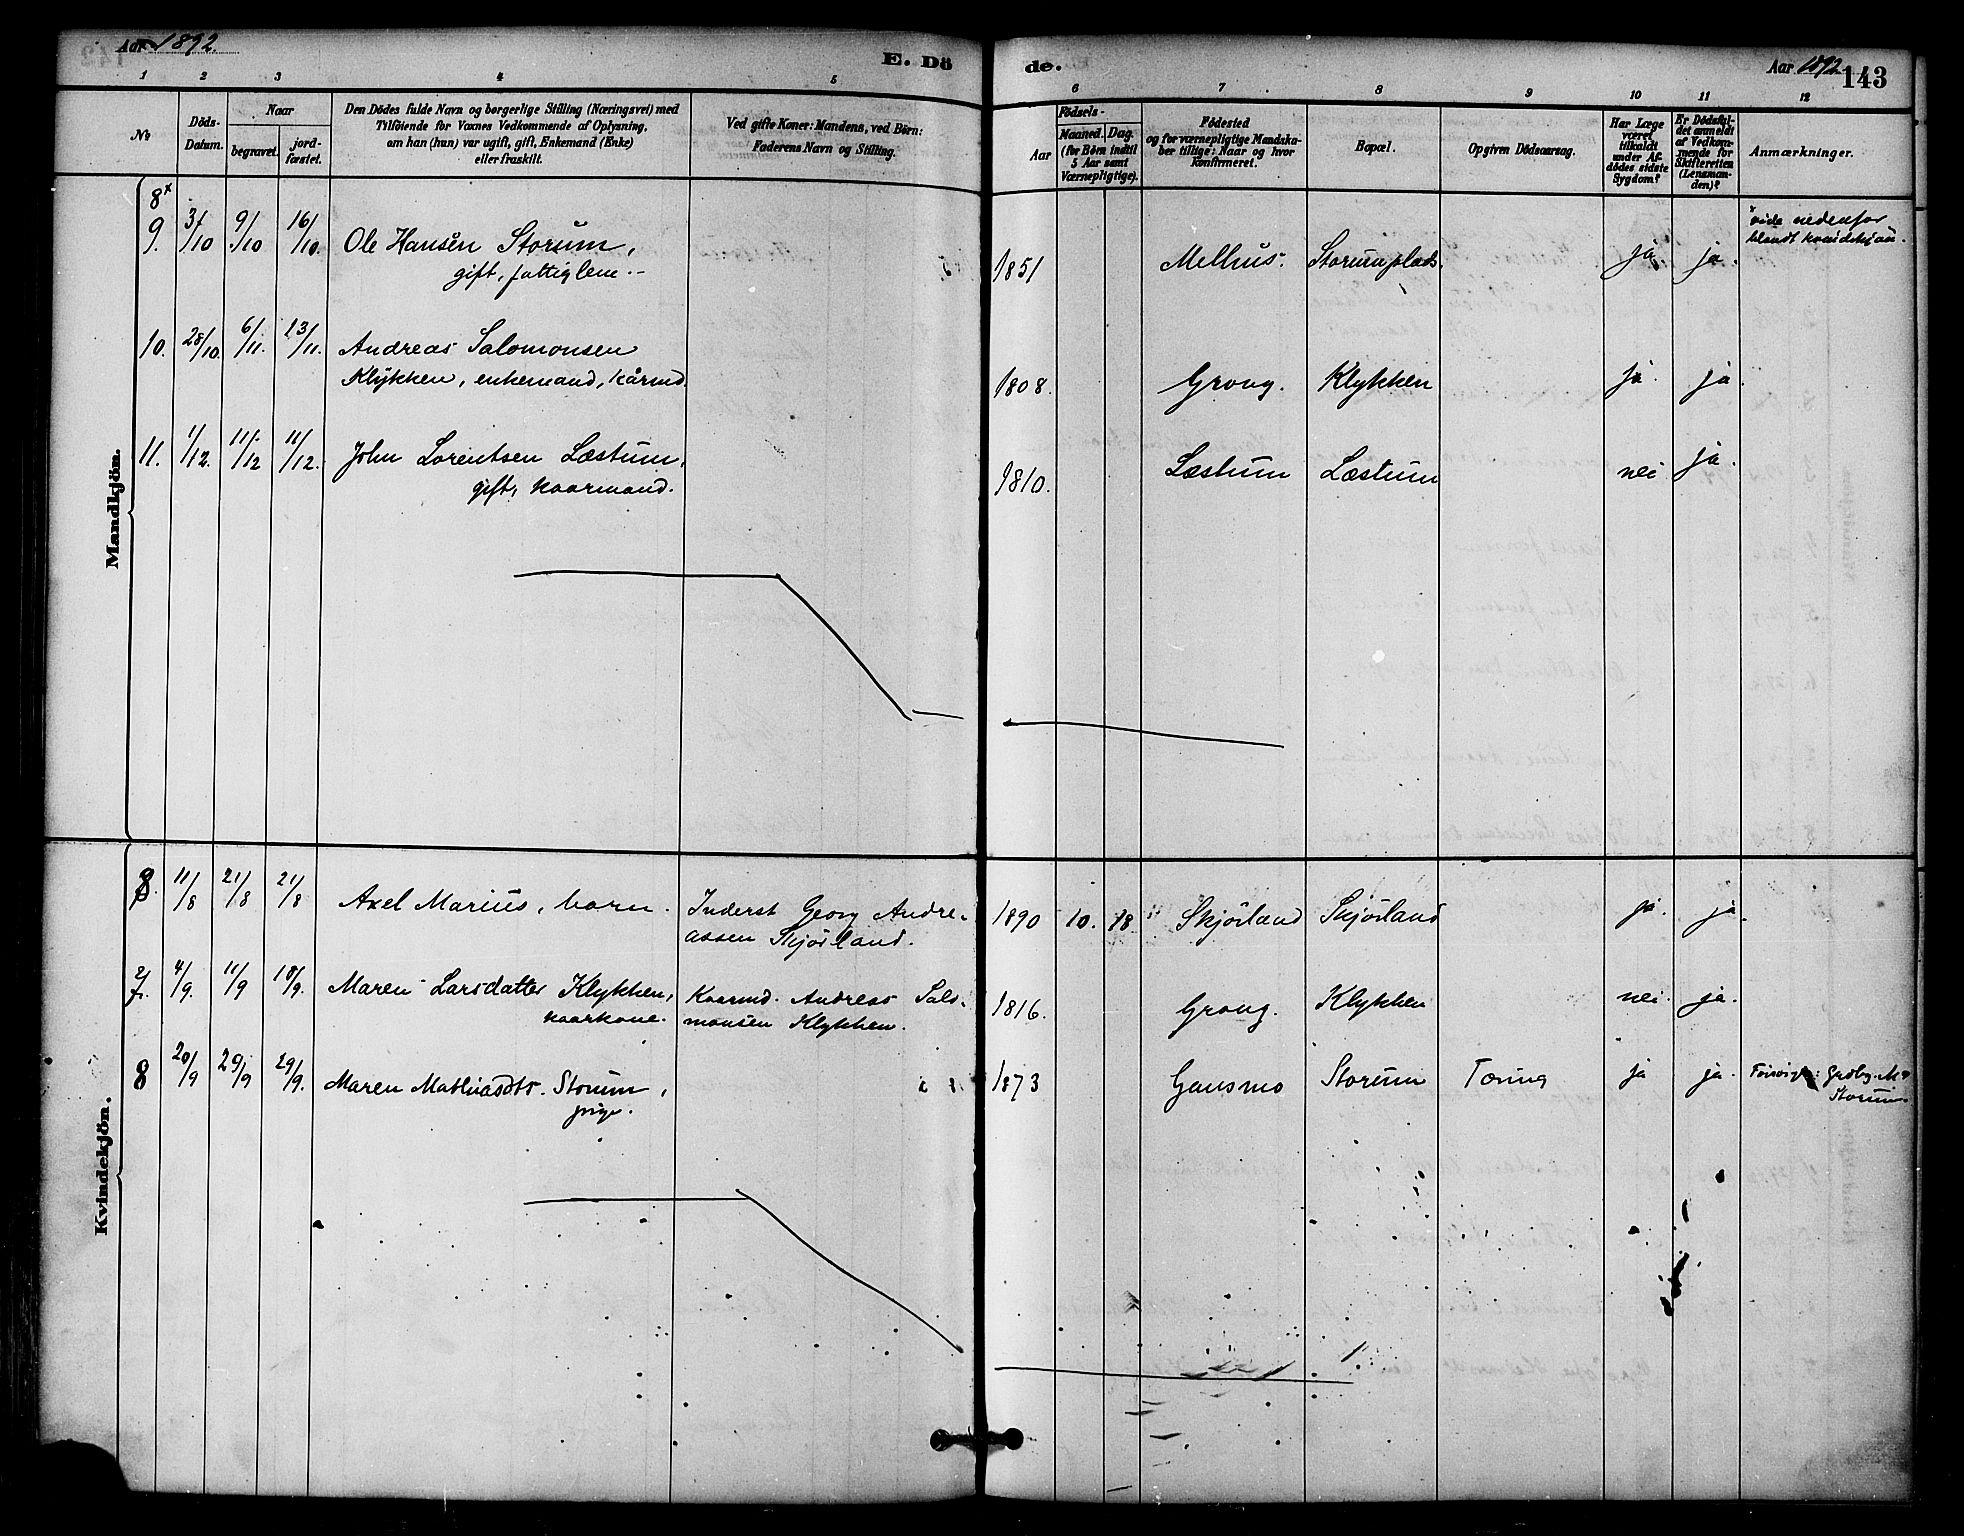 Aar 1892.
E. Dö
de.
Aar 1892 143
1 2 3 4 5
6 7 8 9 10 11 12
No
Döds-
Datum.
Naar
begravet.
jord-
fæstet.
Den Dödes fulde Navn og borgerlige Stilling (Næringsvei) med
Tilföiende for Voxnes Vedkommende af Oplysning,
om han (hun) var ugift, gift, Enkemand (Enke)
eller fraskilt.
Ved gifte Koner: Mandens, ved Börn:
Faderens Navn og Stilling.
Födsels-
Aar
Maaned. Dag.
(for Børn indtil
5 Aar samt
Værnepligtige).
Födested
og for værnepligtige Mandska-
ber tillige: Naar og hvor
konfirmeret.
Bopæl.
Opgiven Dödsaarsag.
Har Læge
været
tilkaldt
under Af-
dödes sidste
Sygdom?
Er Dödsfal-
det anmeldt
af Vedkom-
mende for
Skifteretten
(Lensman-
den)?
Anmærkninger.
Mandkjön.
8 x
vide nedenfor
blandt kvindekjön.
9. 3/10 9/10 16/10 Ole Hansen Storum, 1851 Melhus. Storumplads. ja. ja.
gift, fattiglem.
10. 28/10. 6/11. 13/11. Andreas Salomonsen
Klykken, enkemand, kårmd. 1808. Grong. Klykken ja. ja.
11. 1/12. 11/12 11/12. John Lorentsen Læstum, 1810. Læstum Læstum nei ja.
gift, kaarmand.
Kvindekjön.
8. 11/8 21/8 21/8 Axel Marius, barn. Inderst Georg Andre- 1890 10. 18 Skjörland Skjörland ja. ja.
assen Skjörland.
7. 4/9. 11/9 18/9. Maren Larsdatter Klykken, Kaarmd. Andreas Salo- 1816. Grong. Klykken nei. ja.
kaarkone. monsen Klykken.
8 20/9 29/9 29/9. Maren Mathiasdtr. Storum, 1873 Gansmo Storum Tæring ja ja. Grdbr. M.
pige. Storum